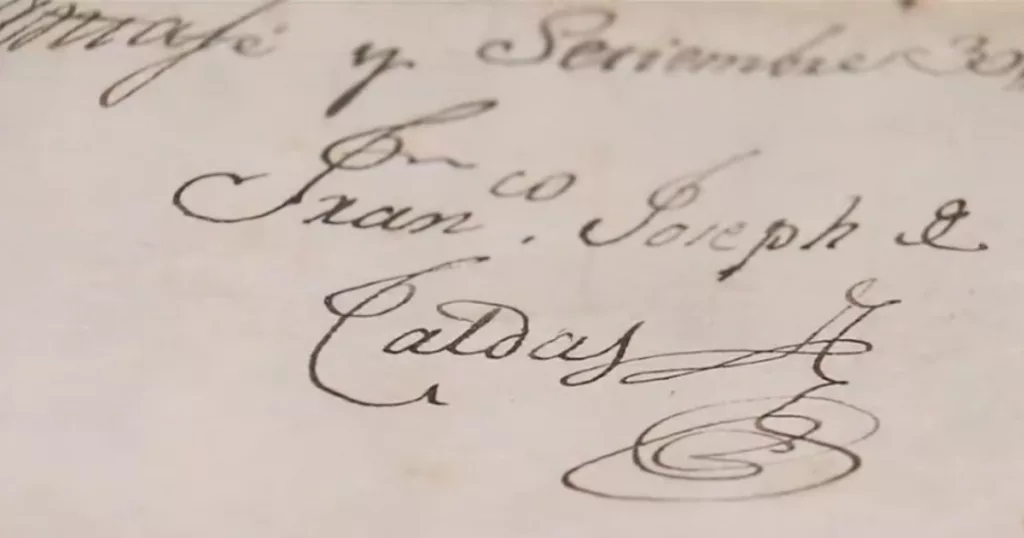 Santafé y Setiembre 30,
Fran.co Joseph de
Caldas